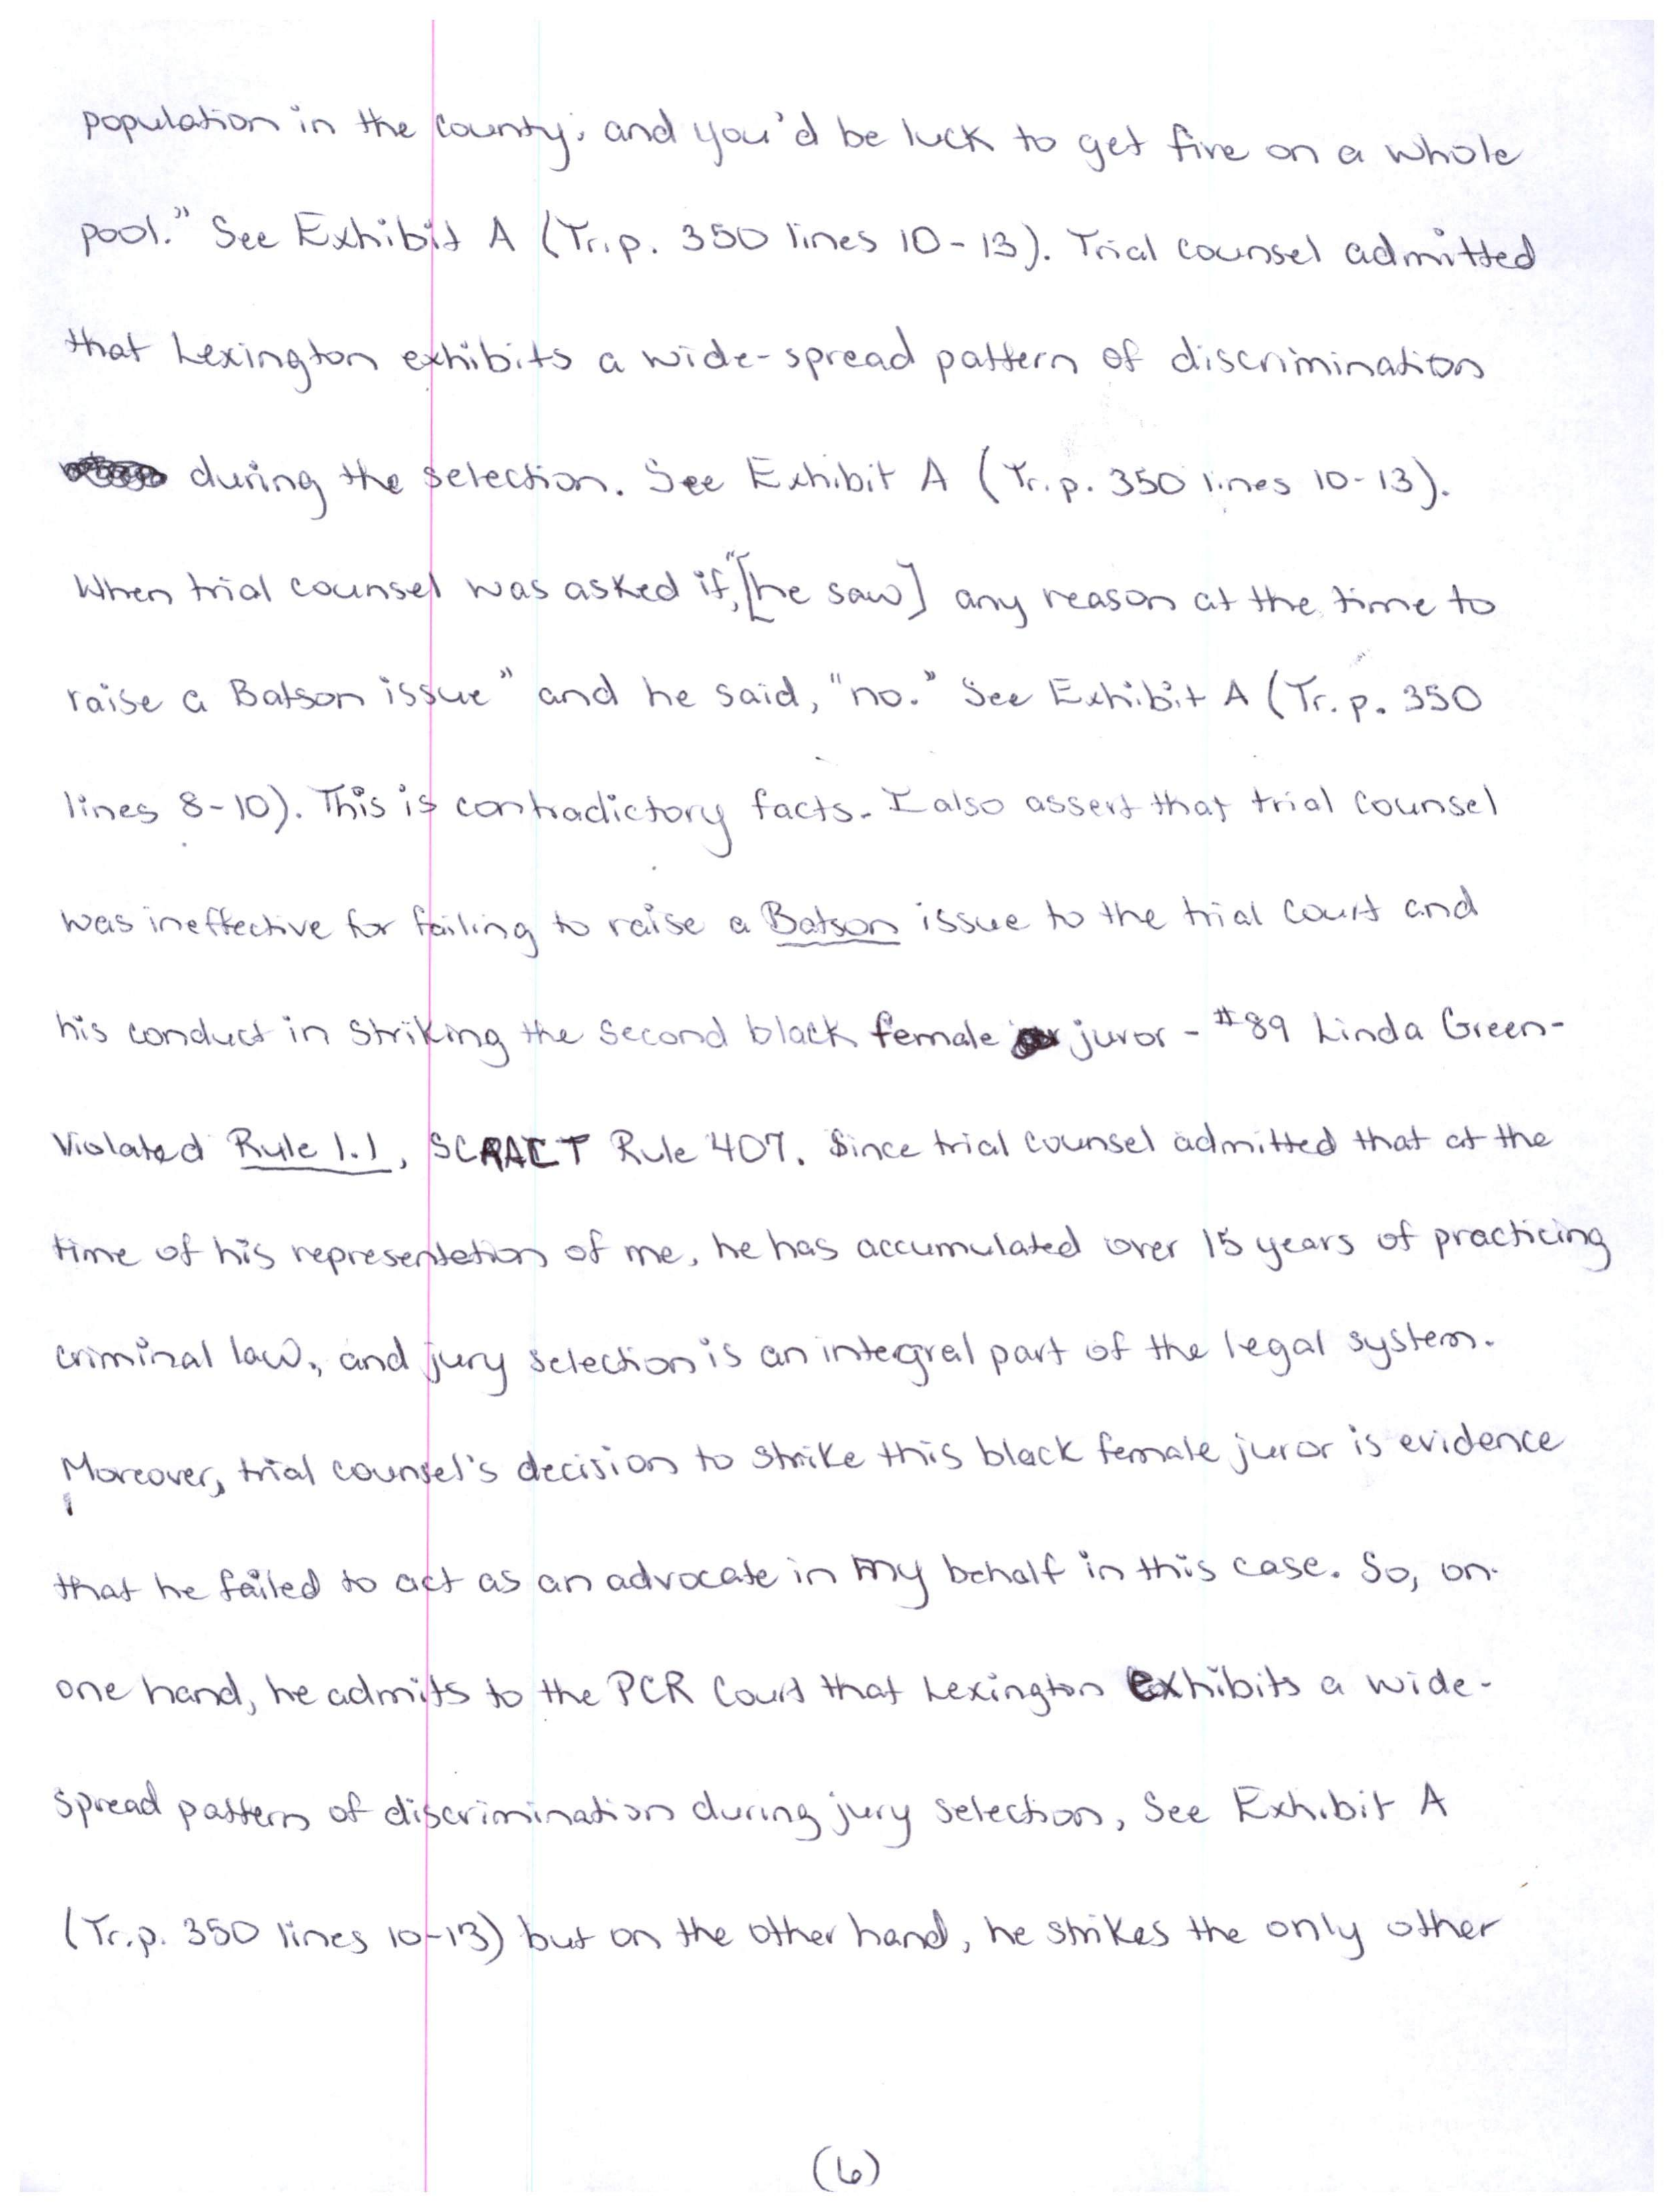 population in the county, and you'd be luck to get five on a whole
pool." See Exhibit A (Tr.p. 350 lines 10-13). Trial counsel admitted
that Lexington exhibits a wide-spread pattern of discrimination
during the selection. See Exhibit A (Tr.p. 350 lines 10-13).
When trial counsel was asked if, "[he saw] any reason at the time to
raise a Batson issue" and he said, "no." See Exhibit A (Tr. p. 350
lines 8-10). This is contradictory facts. I also assert that trial counsel
was ineffective for failing to raise a Batson issue to the trial court and
his conduct in striking the second black female juror - #89 Linda Green-
Violated Rule 1.1, SCRACT Rule 407. Since trial counsel admitted that at the
time of his representation of me, he has accumulated over 15 years of practicing
criminal law, and jury selection is an integral part of the legal system.
Moreover, trial counsel's decision to strike this black female juror is evidence
that he failed to act as an advocate in my behalf in this case. So, on
one hand, he admits to the PCR Court that Lexington exhibits a wide-
spread pattern of discrimination during jury selection, See Exhibit A
(Tr.p. 350 lines 10-13) but on the other hand, he strikes the only other
(6)